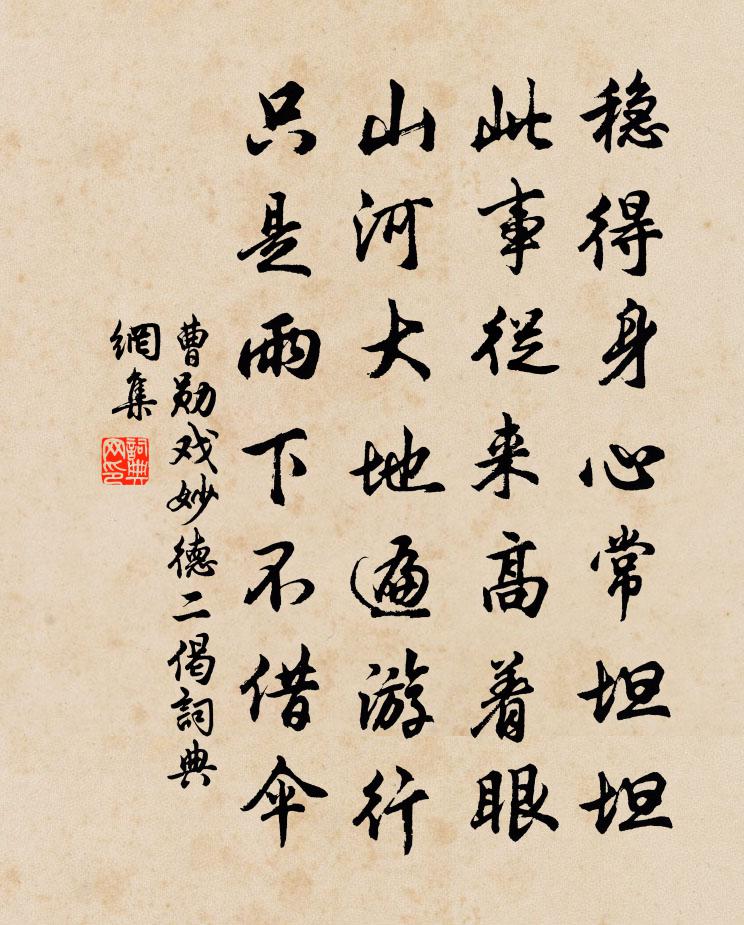 稳得身心常坦坦
此事従来高着眼
山河大地遍游行
只是雨下不借伞
曹勋戏妙德二偈詞典
網集
詞典
网印